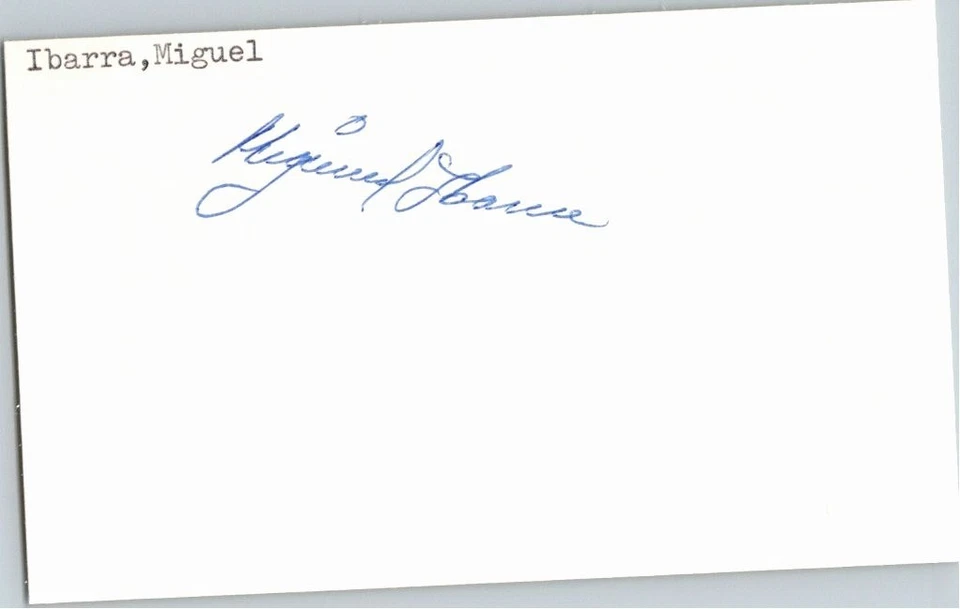 Ibarra,Miguel
Miguel Ibarra